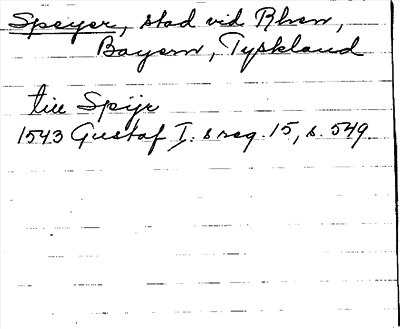 Speyer, stad vid Rhen,
Bayern, Tyskland
till Spijr
1543 Gustaf I:s reg. 15, s. 549.